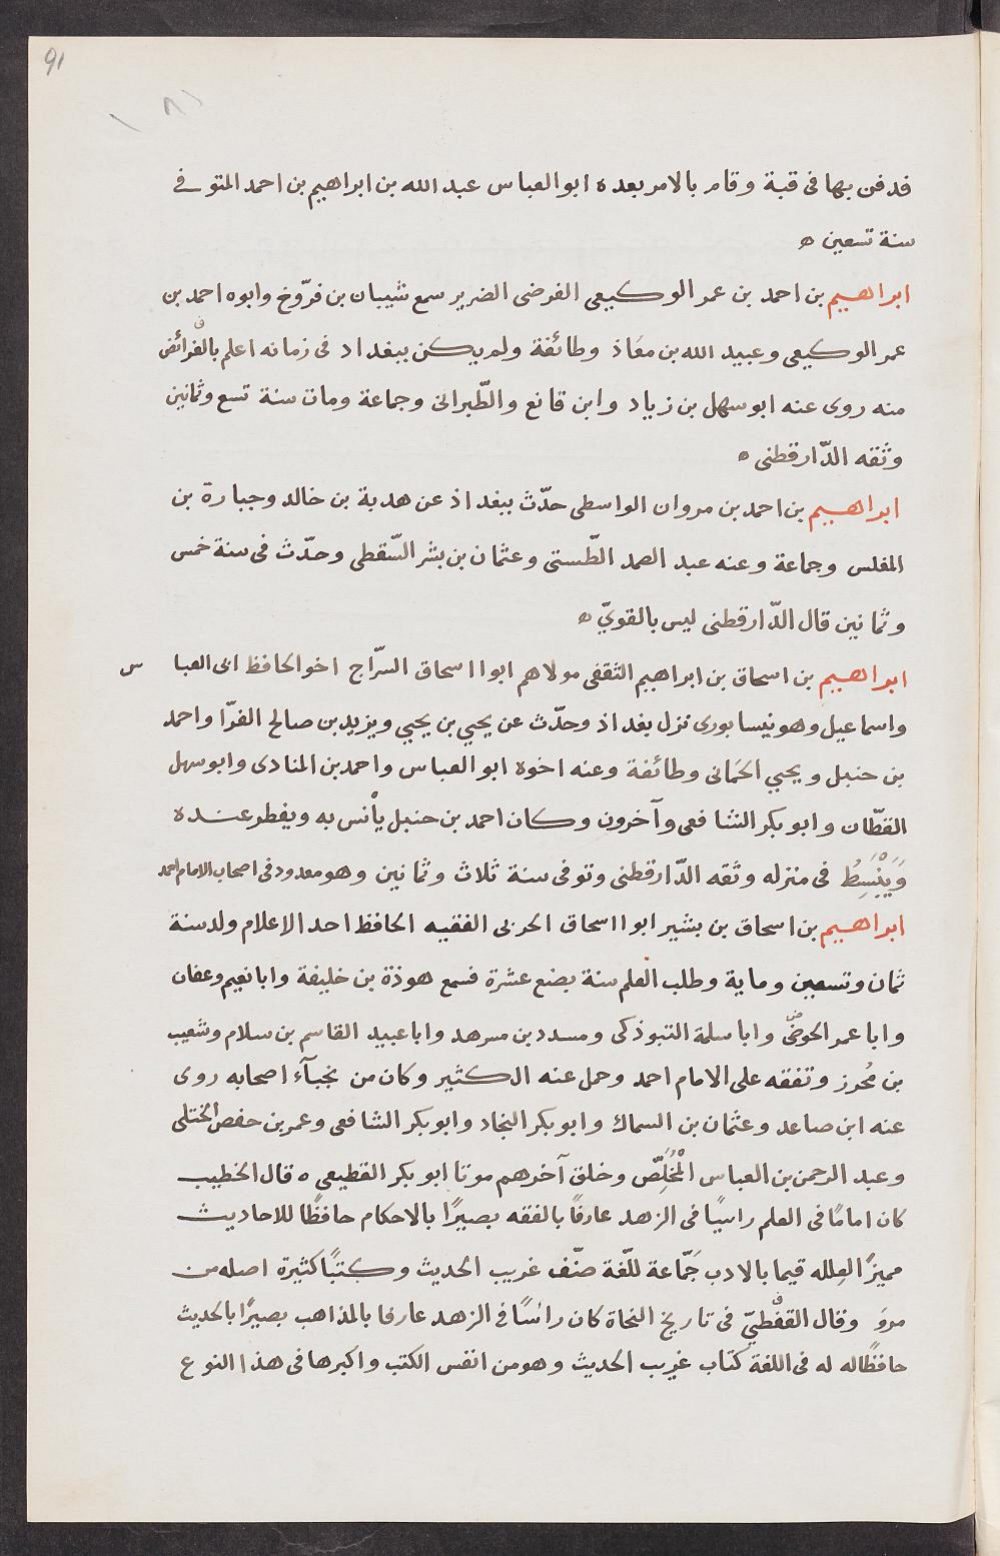 91
فدفن بها فى قبة وقام بالامر بعده ابو العباس عبد الله بن ابراهيم بن احمد المتوفى
سنة تسعين ه
ابراهيم بن احمد بن عمر الوكيعى الفرضى الضرير سمع شيبان بن فرّوخ وابوه احمد بن
عمر الوكيعى وعبيد الله بن معَاذ وطائفة ولم يكن ببغداد فى زمانه اعلم بالفرائض
منه روى عنه ابو سهل بن زياد وابن قانع والطّبرانى وجماعة ومات سنة تسع وثمانين
وثقه الدّارقطنى ه
ابراهيم بن احمد بن مروان الواسطى حدّث ببغداذ عن هدبة بن خالد وجبارة بن
المغلس وجماعة وعنه عبد الصمد الطّستى وعثمان بن بشر السّقطى وحدّث فى سنة خمس
وثمانين قال الدّارقطنى ليس بالقويّ ه
ابراهيم بن اسحاق بن ابراهيم الثقفى مولاهم ابو اسحاق السرّاج اخو الحافظ ابى العبا س
واسماعيل وهو نيسابورى نزل بغداذ وحدّث عن يحيي بن يحيي ويزيد بن صالح الفرّا واحمد
بن حنبل ويحيي الحَمانى وطائفة وعنه اخوه ابو العباس واحمد بن المنادى وابو سهل
القطّان وابو بكر الشافعى وآخرون وكان احمد بن حنبل يأنس به ويفطر عنده
وَيَنْبَسِطُ فى منزله وثقه الدّارقطنى وتوفى سنة ثلاث وثمانين وهو معدود فى اصحاب الامام احمد
ابراهيم بن اسحاق بن بشير ابو اسحاق الحربى الفقيه الحافظ احد الاعلام ولد سنة
ثمان وتسعين وماية وطلب العلم سنة بضع عشرة فسمع هوذة بن خليفة وابا نعيم وعفان
وابا عمر الحوضىّ وابا سلمة التبوذكى ومسدد بن مسرهد وابا عبيد القاسم بن سلام وشعيب
بن مُحرز وتفقه على الامام احمد وحمل عنه الكثير وكان من نجبآء اصحابه روى
عنه ابن صاعد وعثمان بن السماك وابو بكر النجاد وابو بكر الشافعى وعمر بن حفص الختلى
وعبد الرحمن بن العباس الْمُخَلِّصّ وخلق آخرهم موتا ابو بكر القطيعى ه قال الخطيب
كان امامًا فى العلم راسيًا فى الزهد عارفًا بالفقه بصيرًا بالاحكام حافظًا للاحاديث
مميزًا لعِلله قيما بالادب جَمّاعة للّغة صنّف غريب الحديث وكتبًا كثيرة اصله من
مروَ وقال القفْطيّ فى تاريخ النحاة كان رائسًا فى الزهد عارفا بالمذاهب بصيرًا بالحديث
حافظًا له له فى اللغة كتاب غريب الحديث وهو من انفس الكتب واكبرها فى هذا النوع